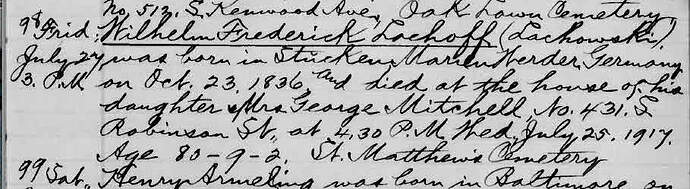 No. 513. S. Kenwood Ave., Oak Lawn Cemetery
98 Frid: Wilhelm Frederick Lachoff (Lachowski),
July 27 was born in Stucken, Marienwerder, Germany
3. P.M. on Oct. 23, 1836, and died at the house of his
daughter Mrs George Mitchell, No. 431. S.
Robinson St., at 4,30 P.M. Wed, July 25. 1917.
Age 80-9-2. St. Matthew's Cemetery
99 Sat., Henry Armeling was born in Baltimore on